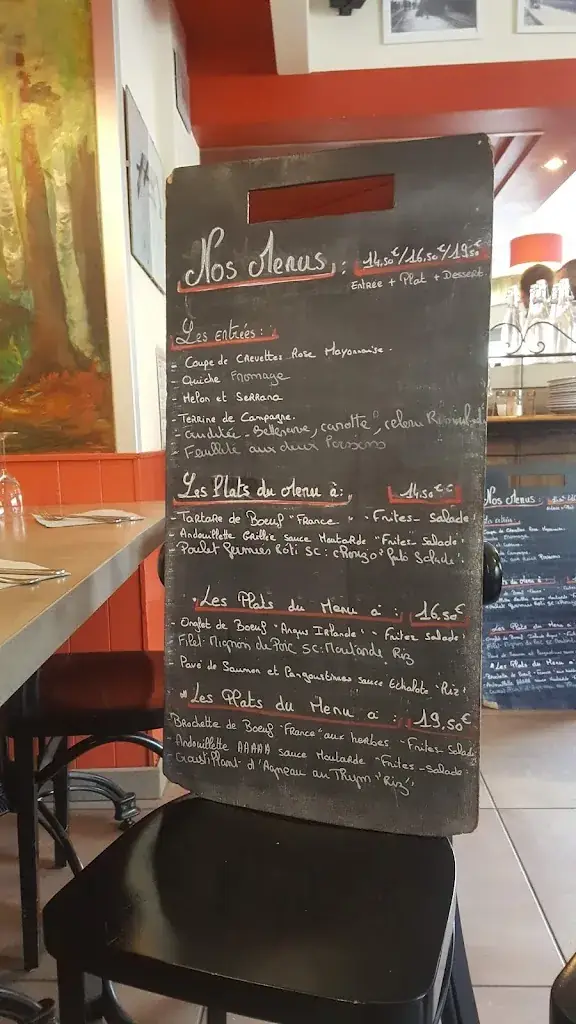 Nos Menus : 14,50€/16,50€/19,50€
Entrée + Plat + Dessert
Les entrées :
- Coupe de Crevettes Rose Mayonnaise.
- Quiche Fromage
- Melon et Serrano
- Terrine de Campagne.
- Crudités - Betterave, carotte, celeri
- Feuilleté aux deux Poissons
Les Plats du Menu à : 14,50€
- Tartare de Boeuf "France" - Frites - Salade
- Andouillette Grillée sauce Moutarde "Frites - Salade"
- Poulet fermier Rôti SC : chorizo "
* Les Plats du Menu à : 16,50€
- Onglet de Boeuf "Angus Irlande" - Frites Salade
- Filet Mignon de Porc SC: Moutarde Riz
- Pavé de Saumon et Langoustines sauce Echalote "Riz"
* Les Plats du Menu à : 19,50€
- Brochette de Boeuf "France" aux herbes - Frites - Salade
- Andouillette AAAAA sauce Moutarde "Frites - Salade"
- d'Agneau au Thym "Riz"
Nos Menus